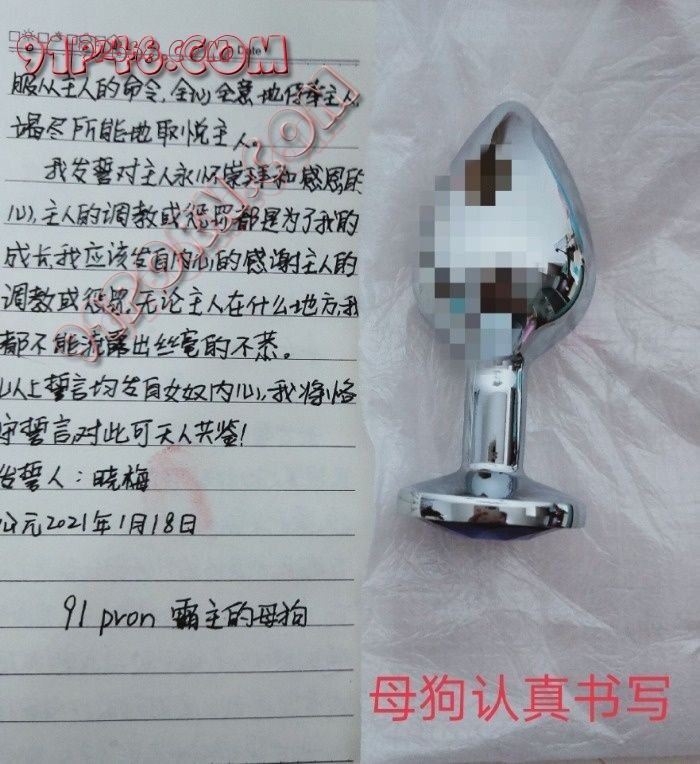 91P46.COM
Date
服从主人的命令,全心全意地侍奉主人,
竭尽所能地取悦主人。
我发誓对主人永怀崇拜和感恩的
心,主人的调教或惩罚都是为了我的
成长,我应该发自内心的感谢主人的
调教或惩罚,无论主人在什么地方,我
都不能流露出丝毫的不恭。
以上誓言均发自女奴内心,我将恪
守誓言,对此可天人共鉴!
发誓人:晓梅
公元2021年1月18日
91 pron 霸主的母狗
91PORNY.COM
母狗认真书写